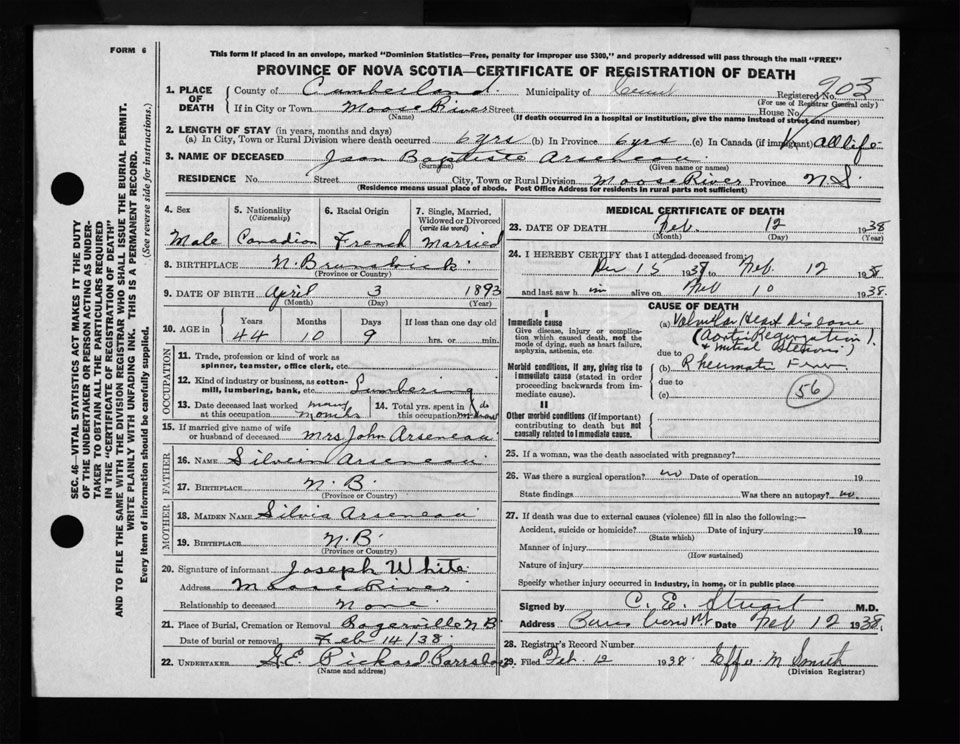 FORM 6
This form if placed in an envelope, marked "Dominion Statistics—Free, penalty for improper use $300," and properly addressed will pass through the mail "FREE"
PROVINCE OF NOVA SCOTIA—CERTIFICATE OF REGISTRATION OF DEATH
SEC. 46—VITAL STATISTICS ACT MAKES IT THE DUTY
OF THE UNDERTAKER OR PERSON ACTING AS UNDER-
TAKER TO OBTAIN ALL THE PARTICULARS REQUIRED
IN THE "CERTIFICATE OF REGISTRATION OF DEATH"
AND TO FILE THE SAME WITH THE DIVISION REGISTRAR WHO SHALL ISSUE THE BURIAL PERMIT.
WRITE PLAINLY WITH UNFADING INK. THIS IS A PERMANENT RECORD.
Every item of information should be carefully supplied. (See reverse side for instructions.)
1. PLACE OF DEATH County of Cumberland Municipality of Cum Registered No. 203
(For use of Registrar General only)
If in City or Town Moose River Street House No.
(Name) (If death occurred in a hospital or institution, give the name instead of street and number)
2. LENGTH OF STAY (in years, months and days)
(a) In City, Town or Rural Division where death occurred 6 yrs (b) In Province 6 yrs (c) In Canada (if immigrant) all life
3. NAME OF DECEASED Jean Baptiste Arseneau
(Surname) (Given name or names)
RESIDENCE No. Street City, Town or Rural Division Moose River Province N.S.
(Residence means usual place of abode. Post Office Address for residents in rural parts not sufficient)
4. Sex 5. Nationality (Citizenship) 6. Racial Origin 7. Single, Married, Widowed or Divorced (write the word)
Male Canadian French Married
8. BIRTHPLACE N. Brunswick
(Province or Country)
9. DATE OF BIRTH April 3 1893
(Month) (Day) (Year)
10. AGE in Years Months Days If less than one day old
44 10 9 hrs. or min.
OCCUPATION
11. Trade, profession or kind of work as
spinner, teamster, office clerk, etc.
12. Kind of industry or business, as cotton-
mill, lumbering, bank, etc. Lumbering
13. Date deceased last worked at this occupation many months 14. Total yrs. spent in this occupation do
15. If married give name of wife
or husband of deceased Mrs John Arseneau
FATHER
16. NAME Silvein Arseneau
17. BIRTHPLACE N.B.
(Province or Country)
MOTHER
18. MAIDEN NAME Silvia Arseneau
19. BIRTHPLACE N.B.
(Province or Country)
20. Signature of informant Joseph White
Address Moose River
Relationship to deceased None
21. Place of Burial, Cremation or Removal Rogerville N B
Date of burial or removal Feb 14/38.
22. UNDERTAKER G.E. Pickard Parrsboro
(Name and address)
MEDICAL CERTIFICATE OF DEATH
23. DATE OF DEATH Feb. 12 1938
(Month) (Day) (Year)
24. I HEREBY CERTIFY that I attended deceased from
Dec 15 1937 to Feb 12 1938
and last saw him alive on Feb 10 1938.
CAUSE OF DEATH
I
Immediate cause
Give disease, injury or complica-
tion which caused death, not the
mode of dying, such as heart failure,
asphyxia, asthenia, etc.
(a) Valvular Heart disease
(Aortic Regurgitation
& Mitral Stenosis)
due to
Morbid conditions, if any, giving rise to
immediate cause (stated in order
proceeding backwards from im-
mediate cause).
(b) Rheumatic Fever
due to
(c) 56
II
Other morbid conditions (if important)
contributing to death but not
causally related to immediate cause.
25. If a woman, was the death associated with pregnancy?
26. Was there a surgical operation? no Date of operation 19
State findings Was there an autopsy? no
27. If death was due to external causes (violence) fill in also the following:—
Accident, suicide or homicide? Date of injury 19
(State which)
Manner of injury
(How sustained)
Nature of injury
Specify whether injury occurred in industry, in home, or in public place
Signed by C. E. Stuart M.D.
Address Date Feb 12 1938
28. Registrar's Record Number
29. Filed Feb. 12 1938 Effie M Smith
(Division Registrar)